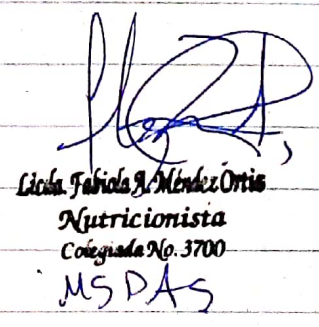 Licda. Fabiola A. Méndez Ortis
Nutricionista
Colegiada No. 3700
MSPAS